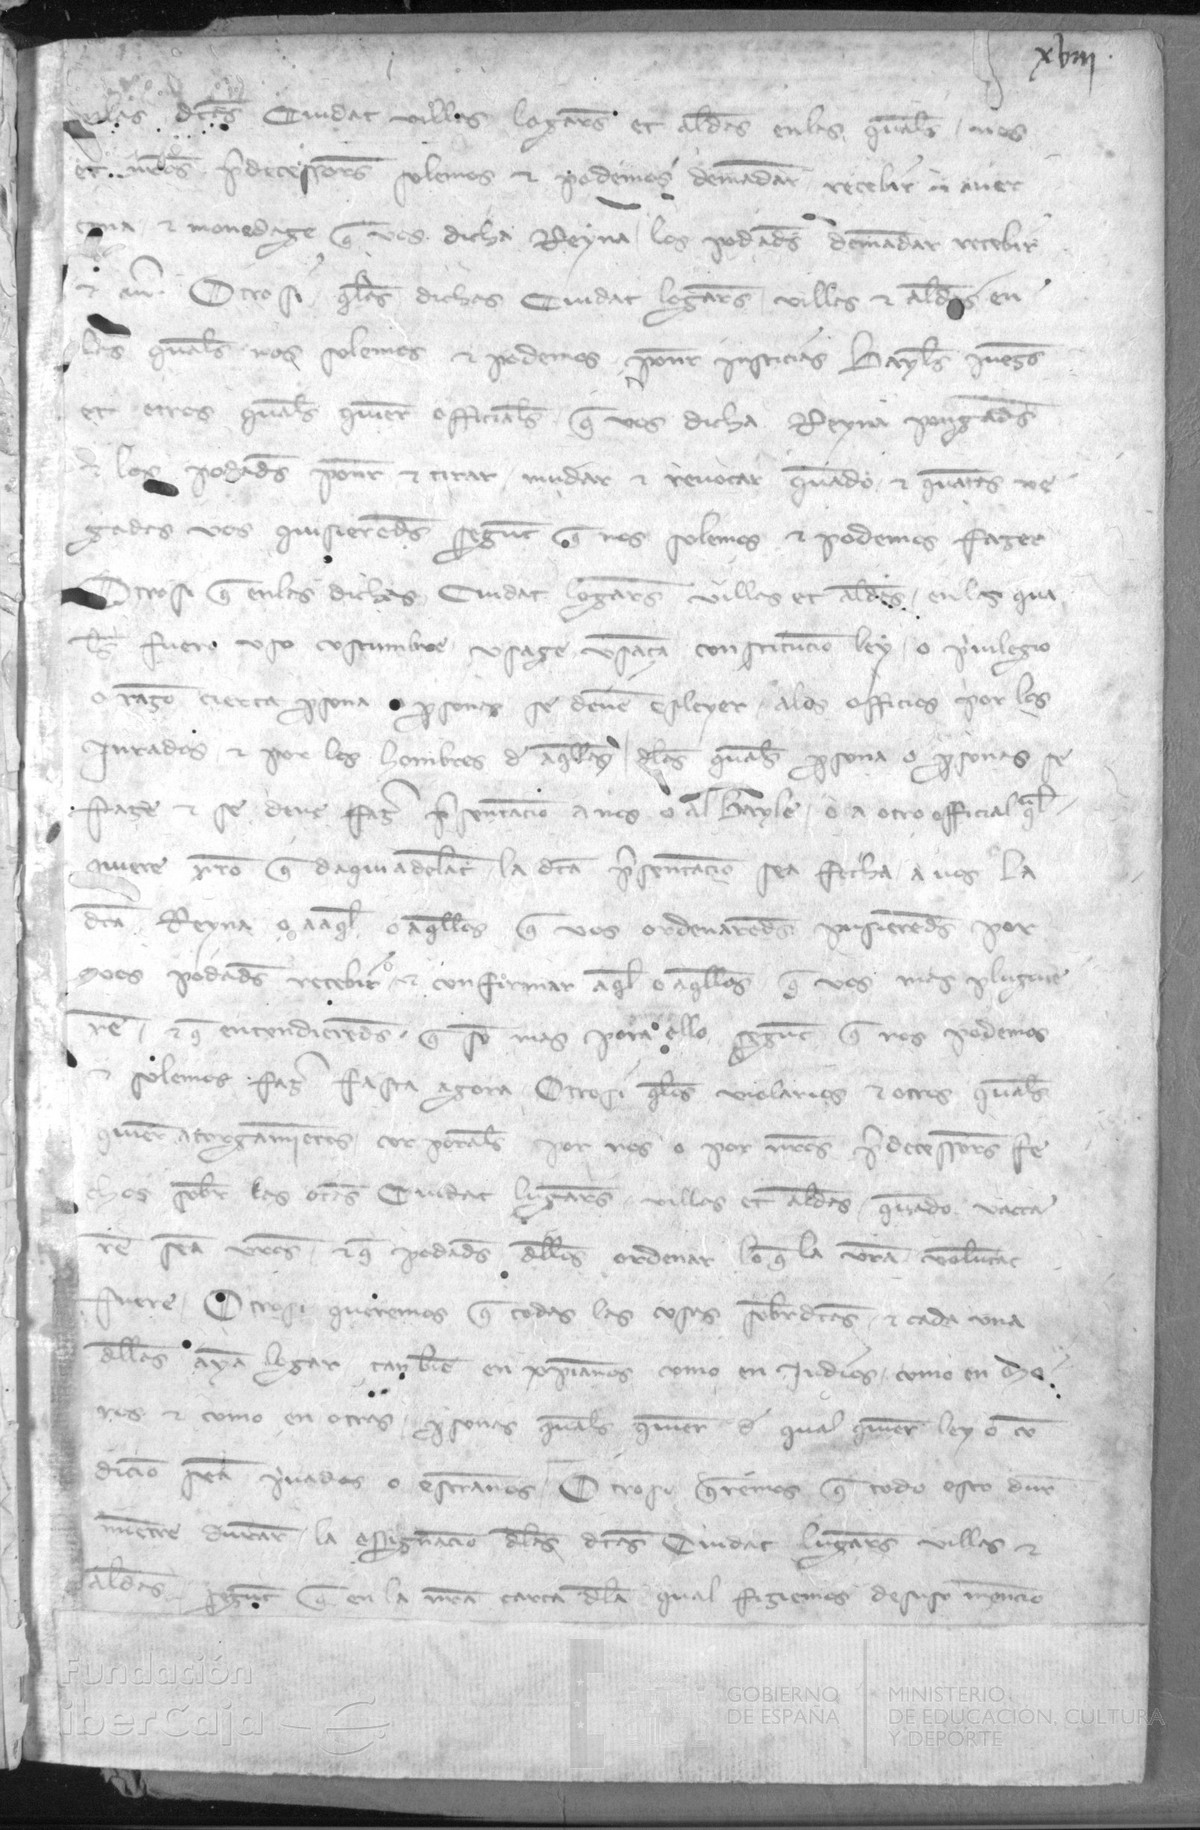 xviii
dctas Ciudat villas logars et aldeas en las quals nos
et nros predecessors solemos et podemos demandar recebir aver
cena et monedage que vos dicha Reyna los podads demandar recebir
et aver Otrosi qlas dichas Ciudat logars villas et aldeas en
las quals nos solemos et podemos poner justicias Bayles jueges
et otros quals quier officials que vos dicha Reyna pongads
et los podads poner et tirar mudar et revocar quando et quantas ve
gadas vos quisiereds segunt que nos solemos et podemos fazer
Otrosi que en las dichas Ciudat logars villas et aldeas en las qua
ls fuero uso costumbre usage usança constitucio ley o privilegio
o razo cierta persona o personas se deven esleyer a los officios por los
jurados et por los hombres de aqllas dlas quals persona o personas se
faze et se deve fazer presentacio a nos o al bayle o a otro official qual
quiere nro que daquiadelant la dcta presentacio sea fecha a vos la
dcta Reyna o a aql o aqllos que vos ordenareds pusiereds por
vos podads recebir et confirmar aql o aqllos que vos mas pluguie
re et que entendiereds que so mas pora ello segunt que nos podemos
et solemos fazer fasta agora Otrosi qlos violarios et otros quals
quier atorgamientos corporals por nos o por nros predecessors fe
chos sobre las dctas Ciudat lugars villas et aldeas quando vacca
re sean vros et que podads dllos ordenar lo que la vra voluntat
fuere Otrosi queremos que todas las cosas sobredctas et cada una
dllas aya logar tanbie en xpianos como en Judios como en Mo
ros et como en otras personas quals quier de qual quier ley o con
dicio sean privados o estranos Otrosi queremos que todo esto dure
mientre durar la assignacio dlas dctas Ciudat lugars villas et
aldeas segunt que en la nra carta dla qual fiziemos desuso mencio
Fundación
iberCaja
GOBIERNO
DE ESPAÑA
MINISTERIO
DE EDUCACIÓN, CULTURA
Y DEPORTE